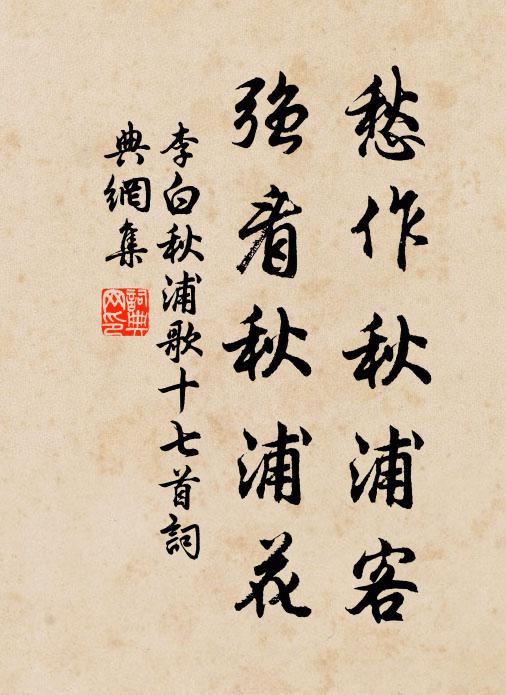 愁作秋浦客
強看秋浦花
李白秋浦歌十七首詞
典網集
詞典網印